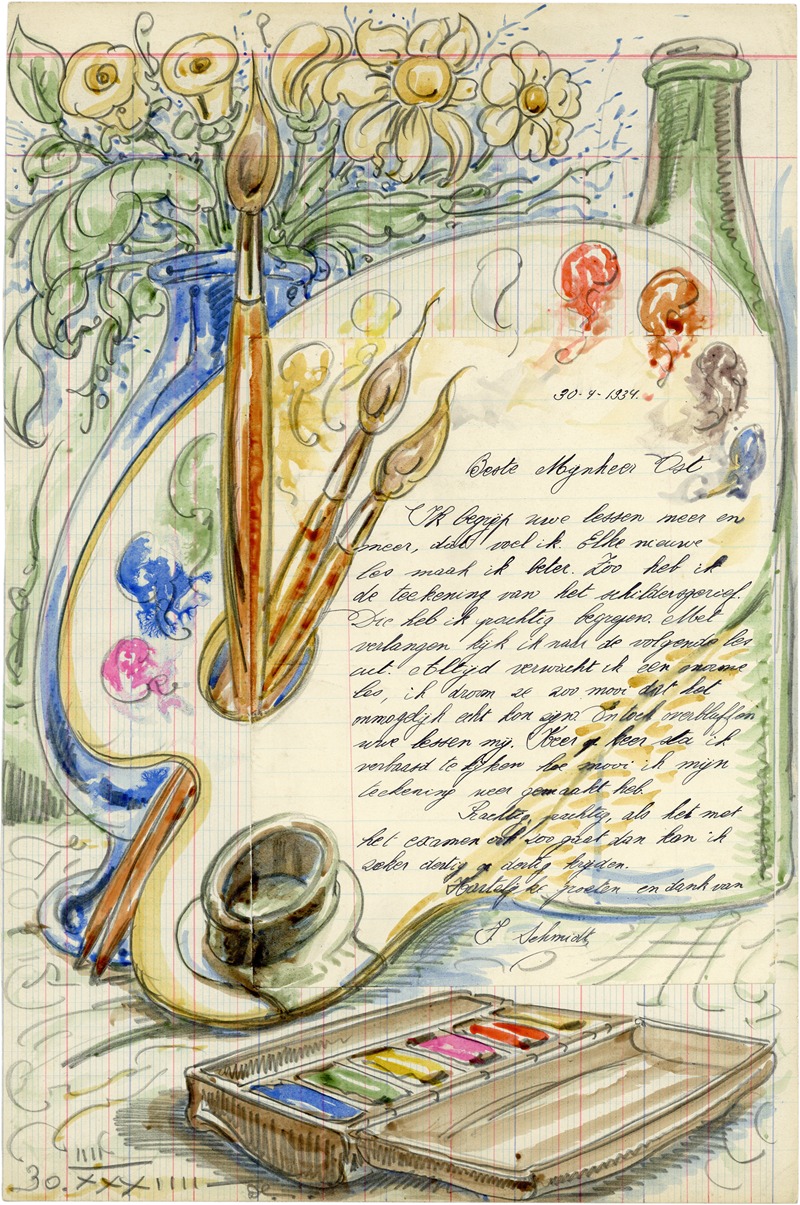 30-4-1934.
Beste Mynheer Ost
Ik begrijp uwe lessen meer en
meer, dat voel ik. Elke nieuwe
les maak ik beter. Zoo heb ik
de teekening van het schildersgerief.
Die heb ik prachtig begrepen. Met
verlangen kijk ik naar de volgende les
uit. Altijd verwacht ik een enorme
les, ik droom ze zoo mooi dat het
onmogelijk echt kon zijn. En toch overbluffen
uwe lessen mij. Keer op keer sta ik
verbaasd te kijken hoe mooi ik mijn
teekening weer gemaakt heb.
Prachtig, prachtig, als het met
het examen ook zoo gaat dan kan ik
zeker dertig op dertig krijgen.
Hartelijke groeten en dank van
J. Schmidt
IIII
30. XXXIIII